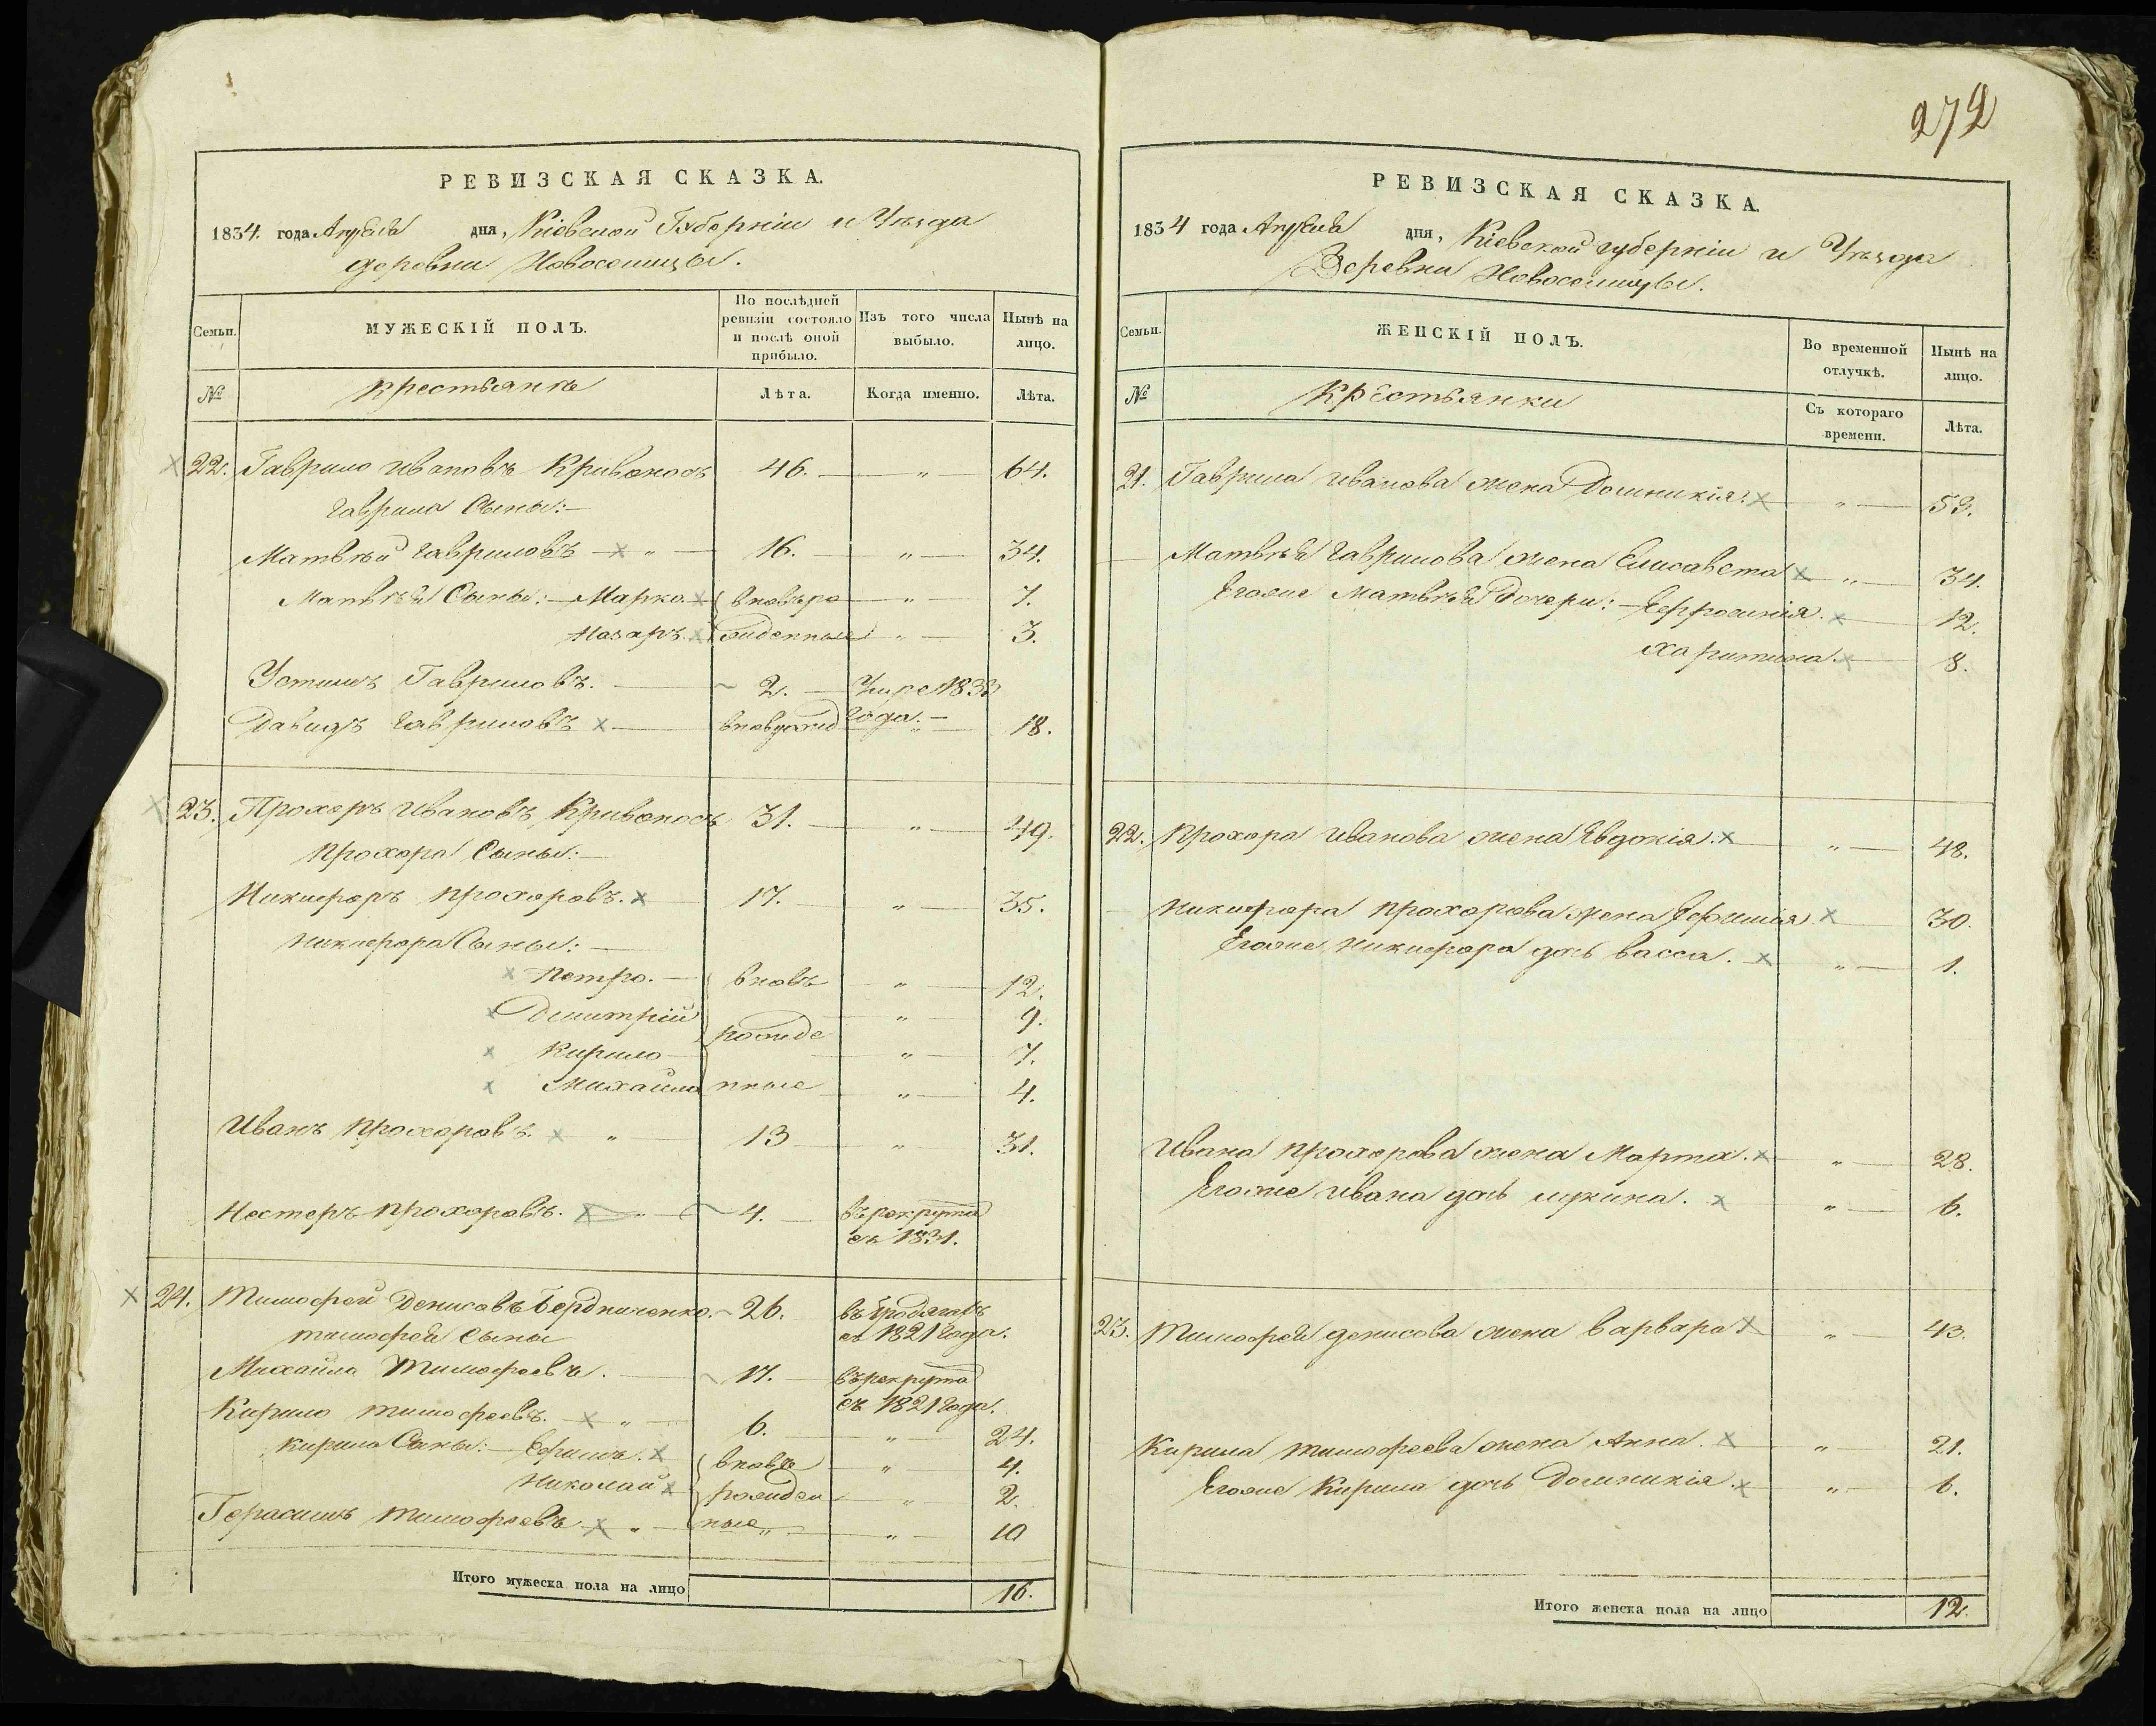 РЕВИЗСКАЯ СКАЗКА.
1834. года Апреля дня, Кіевской Губерніи и Уѣзда
деревни Новоселицы.
Семьи.
МУЖЕСКІЙ ПОЛЪ.
По послѣдней ревизіи состояло и послѣ оной прибыло.
Изъ того числа выбыло.
Нынѣ на лицо.
№
Крестьяне
Лѣта.
Когда именно.
Лѣта.
22. Гаврило Ивановъ Кривоносъ 46. — " — 64.
Гаврила Сыны:—
Матвѣй Гавриловъ — " — 16. — " — 34.
Матвѣя Сыны: — Марко. вновьро — " — 7.
Назаръ. жденные " — 3.
Устимъ Гавриловъ. — 2. — Умре 1833
года. —
Давидъ Гавриловъ — вноврожд — " — 18.
23. Прохоръ Ивановъ Кривоносъ 31. — " — 49.
Прохора Сыны:—
Никифоръ Прохоровъ. 17. — " — 35.
Никифора Сыны: —
Петро. — вновь " — 12.
Димитрій " — 9.
рожде
Кирило — " — 7.
Михайло нные " — 4.
Иванъ Прохоровъ. " — 13 — " — 31.
Несторъ Прохоровъ. — " — 4. — въ рекруты
съ 1831.
24. Тимофей Денисовъ Бердниченко. 26. въ бродягахъ
съ 1821 года.
Тимофея Сыны
Михайло Тимофеевъ. — 17. — въ рекруты
съ 1821 года.
Кирило Тимофеевъ. — " — 6. — " — 24.
Кирила Сыны: — Ефимъ. вновь — " — 4.
Николай рожден — " — 2.
Герасимъ Тимофеевъ — " — ные " — " — 10
Итого мужеска пола на лицо 16.
272
РЕВИЗСКАЯ СКАЗКА.
1834 года Апреля дня, Кіевской губерніи и Уѣзда
Деревни Новоселицы.
Семьи.
ЖЕНСКІЙ ПОЛЪ.
Во временной отлучкѣ.
Нынѣ на лицо.
№
Крестьянки
Съ котораго времени.
Лѣта.
21. Гаврила Иванова жена Домникія. " — 53.
Матвѣя Гаврилова жена Елисавета " — 34.
Егоже Матвѣя Дочери: — Ефросинія. — 12.
Харитина. — 8.
22. Прохора Иванова жена Явдокія. " — 48.
Никифора Прохорова жена Ефимія — 30.
Егоже Никифора дочь Васса. " — 1.
Ивана Прохорова жена Марта. " — 28.
Егоже Ивана дочь. " — 6.
23. Тимофея Денисова жена Варвара " — 43.
Кирила Тимофеева жена Анна. " — 21.
Егоже Кирила дочь Домникія. " — 6.
Итого женска пола на лицо 12.